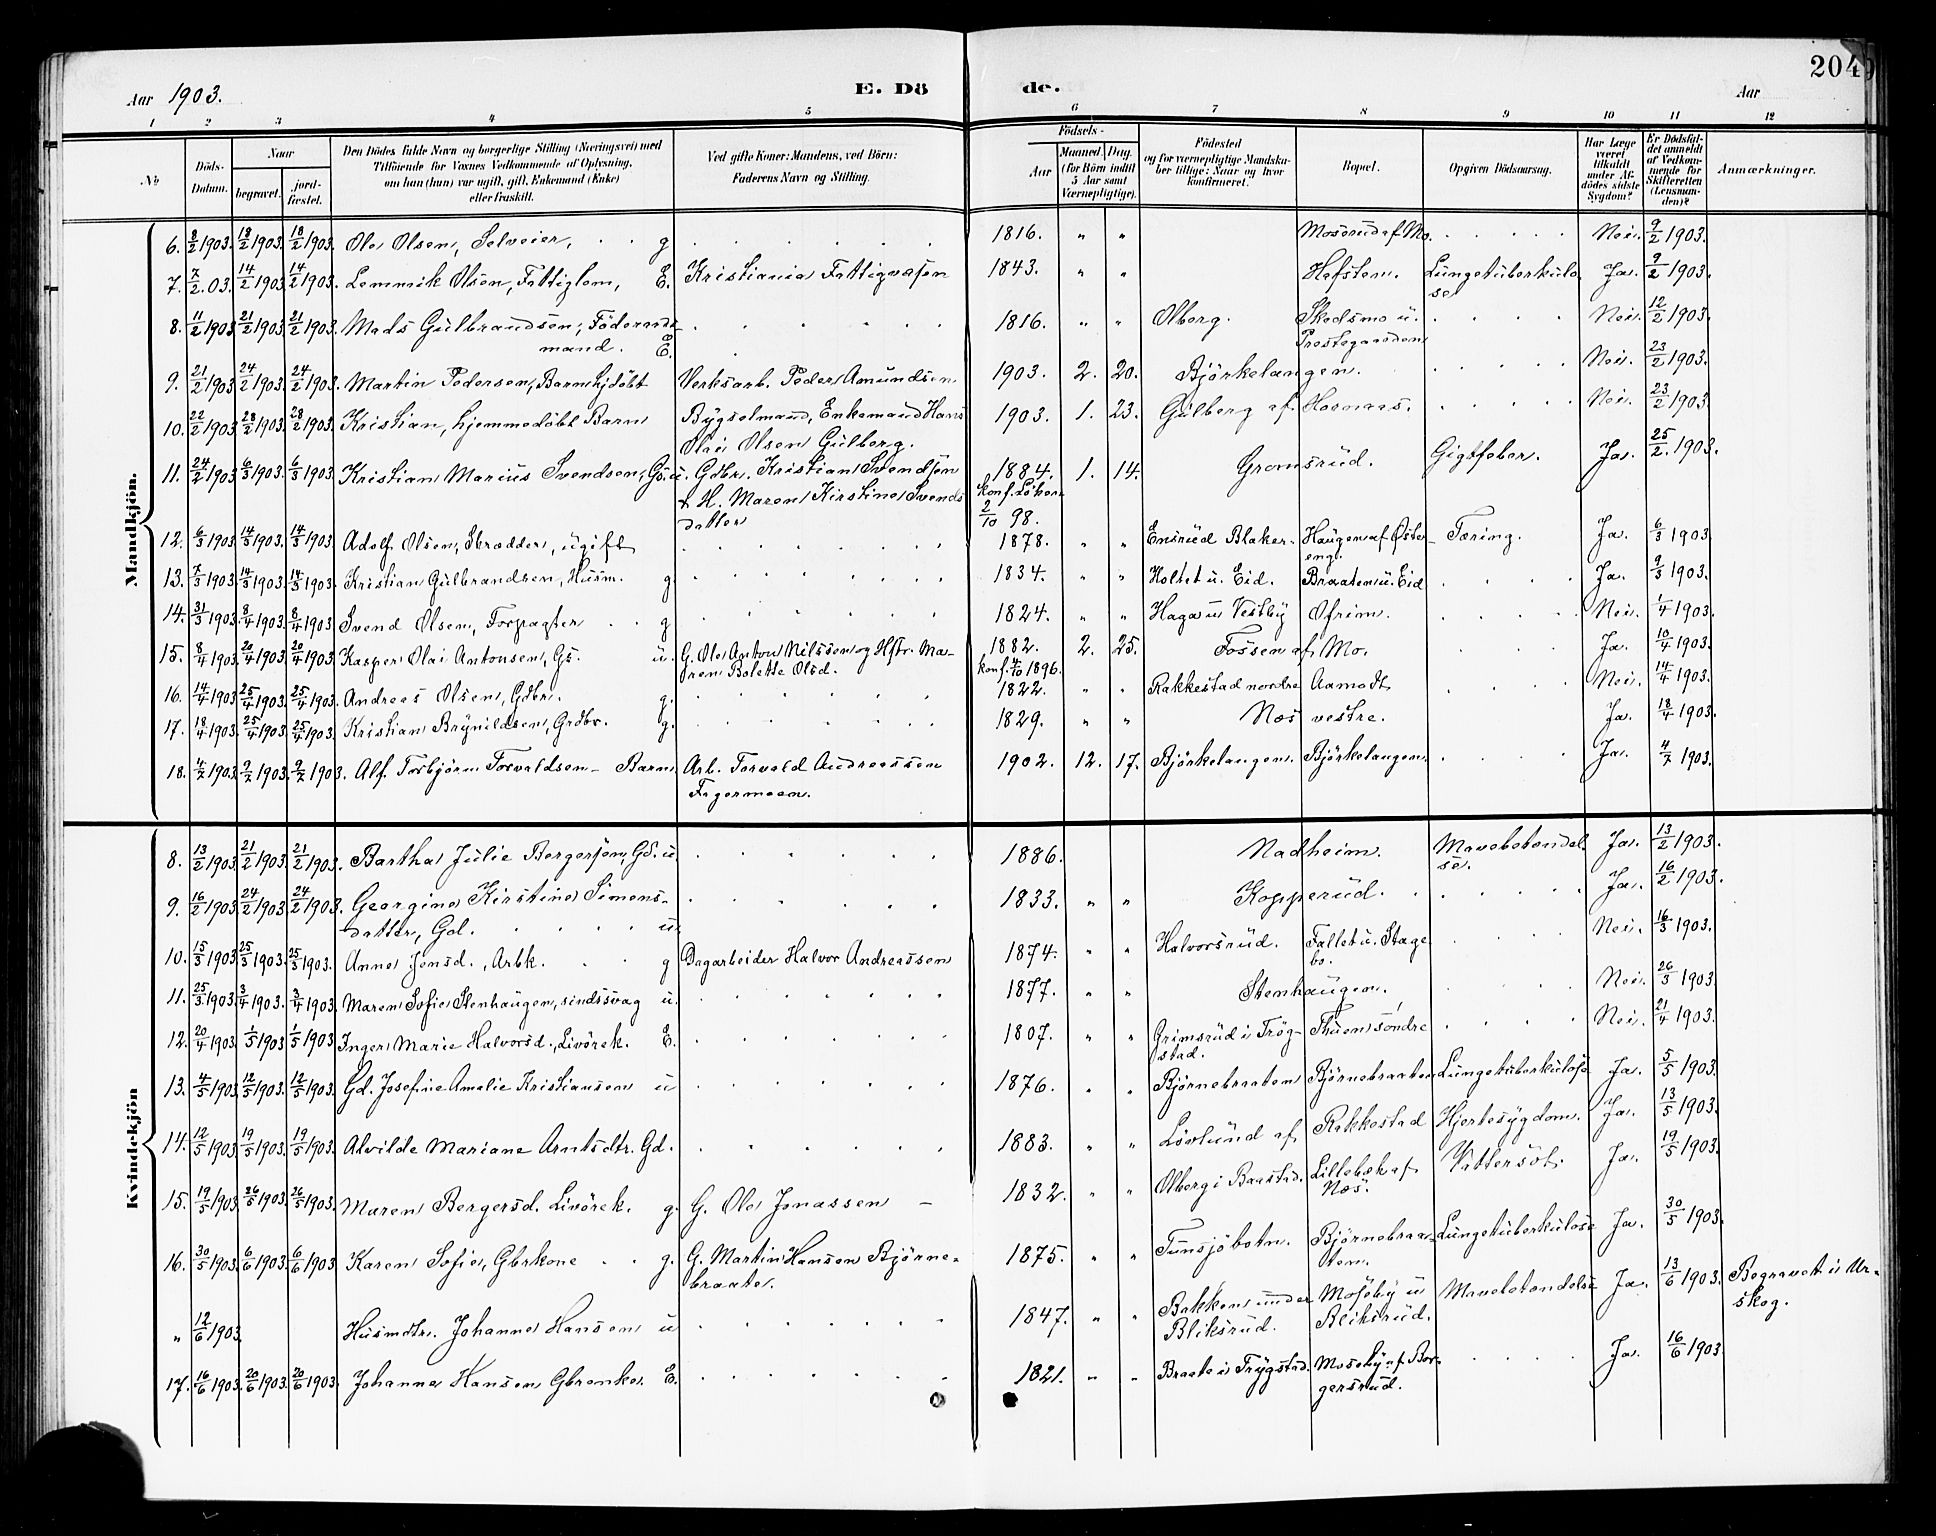 204
Aar 1903. E. Dö de. Aar
1 2 3 4 5 6 7 8 9 10 11 12
No Döds-Datum. Naar begravet. jord-fæstet. Den Dödes fulde Navn og borgerlige Stilling (Næringsvei) med Tilföiende for Voxnes Vedkommende af Oplysning, om han (hun) var ugift, gift, Enkemand (Enke) eller fraskilt. Ved gifte Koner: Mandens, ved Börn: Faderens Navn og Stilling. Födsels- Aar Maaned. Dag. (for Börn indtil 5 Aar samt Værnepligtige). Födested og for værnepligtige Mandskaber tillige: Naar og hvor konfirmeret. Bopæl. Opgiven Dödsaarsag. Har Læge været tilkaldt under Afdödes sidste Sygdom? Er Dödsfaldet anmeldt af Vedkommende for Skifteretten (Lensmanden)? Anmærkninger.
Mandkjön.
6. 8/2 1903. 18/2 1903. 18/2 1903. Ole Olsen, Selveier, g 1816. " " Moserud af Mo. Nei. 9/2 1903.
7. 7/2 03. 14/2 1903 14/2 1903. Lemmik Olsen, Fattiglem, E. Kristiania Fattigvæsen 1843. " " Hofsten. Lungetuberkulo- Ja. 9/2 1903.
se
8. 11/2 1903 21/2 1903 21/2 1903. Mads Gulbrandsen, Föderaads- 1816. " " Olberg. Skedsmo u. Nei. 12/2 1903.
mand. E. Prestegaarden
9. 21/2 1903 24/2 1903. 24/2 1903. Martin Pedersen, Barn hjdöbt Verksarb. Peder Amundsen 1903. 2. 20. Björkelangen. Nei. 23/2 1903.
10. 22/2 1903 28/2 1903. 28/2 1903. Kristian, hjemmedöbt Barn Bygselmand, Enkemand Hans 1903. 1. 23. Gulberg af Hosnaas. Nei. 23/2 1903.
Olai Olsen Gulberg.
11. 24/2 1903 6/3 1903. 6/3 1903. Kristian Marius Svendsen, Gs. u. Gdbr. Kristian Svendsen 1884. 1. 14. Gromsrud. Gigtfeber. Ja. 25/2 1903.
& H. Maren Kirstine Svends konf. Löken
datter 2/10 98.
12. 6/3 1903 14/3 1903. 14/3 1903. Adolf Olsen, Skrædder, ugift 1878. " " Ensrud Blaker. Haugen af Øster- Tæring. Ja. 6/3 1903
eng.
13. 7/3 1903 14/3 1903. 14/3 1903. Kristian Gulbrandsen, Husm. g. 1834. " " Holtet u. Eid. Braaten u. Eid Ja. 9/3 1903.
14. 31/3 1903. 8/4 1903. 8/4 1903 Svend Olsen, Forpagter g 1824. " " Haga u Vestby Ofrim. Nei. 1/4 1903.
15. 8/4 1903 20/4 1903. 20/4 1903. Kasper Olai Antonsen, Gs. u. G. Ole Anton Nilssen og Hstr. Ma- 1882. 2. 25. Fossen af Mo. Ja. 10/4 1903.
ren Bolette Olsd. konf. 4/10 1896.
16. 14/4 1903 25/4 1903. 25/4 1903. Andreas Olsen, Gdbr. g. 1822. " " Rakkestad nordre Aamodt Nei. 14/4 1903.
17. 18/4 1903. 25/4 1903. 25/4 1903. Kristian Brynildsen, Grdbr. g. 1829. " " Næs vestre. Ja. 18/4 1903.
18. 4/7 1903. 9/7 1903. 9/7 1903. Alf Torbjörn Torvaldsen - Barn. Arb. Torvald Andreassen 1902. 12. 17. Björkelangen. Björkelangen. Ja. 4/7 1903.
Fagermoen.
Kvindekjön
8. 13/2 1903. 21/2 1903. 21/2 1903. Bartha Julie Bergersen, Gd. u. 1886. Nadheim. Mavebetendel- Ja. 13/2 1903.
se.
9. 16/2 1903 24/2 1903 24/2 1903. Georgine Kirstine Simons- 1833. " " Kopperud. Ja. 16/2 1903.
datter, Gd. u.
10. 15/3 1903 25/3 1903 25/3 1903. Anne Jensd., Arbk. g Dagarbeider Halvor Andreassen 1874. " " Halvorsrud. Fallet u. Stage- Nei. 16/3 1903.
bo.
11. 25/3 1903 3/4 1903. 3/4 1903. Maren Sofie Stenhaugen, sindssvag u. 1877. " " Stenhaugen. Nei. 26/3 1903.
12. 20/4 1903. 1/5 1903 1/5 1903 Inger Marie Halvorsd., Livörek. E. 1807. " " Grimsrud i Trög- Thuen söndre Nei. 21/4 1903.
stad.
13. 4/5 1903 12/5 1903. 12/5 1903. Gd. Josefine Amalie Kristiansen u 1876. " " Björnebraaten Björnebraaten Lungetuberkulose Ja. 5/5 1903.
14. 12/5 1903 19/5 1903. 19/5 1903. Alvilde Mariane Arntsdtr. Gd. 1883. " " Lövlund af Rakkestad Hjertesygdom. Ja. 13/5 1903.
15. 19/5 1903 26/5 1903. 26/5 1903. Maren Bergersd. Livörek. g. G. Ole Jonassen - 1832. " " Olberg i Baastad. Lillebæk af Vattersot. Ja. 19/5 1903.
Næs.
16. 30/5 1903 6/6 1903. 6/6 1903 Karen Sofie, Gbrkone g. G. Martin Hansen Björne- 1875. " " Tunsjöbotn. Björnebraa- Lungetuberkulose Ja. 30/5 1903.
braate. ten.
" 12/6 1903. Husmdtr. Johanne Hansen u 1847. " " Bakken under Moseby u Mavebetændelse Ja. 13/6 1903. Begravet i Ur-
Bliksrud. Bliksrud. skog.
17. 16/6 1903. 20/6 1903. 20/6 1903. Johanne Hansen Gbrenke. E. 1821. " " Braate i Trygstad. Moseby af Bor- Ja. 16/6 1903
gersrud.